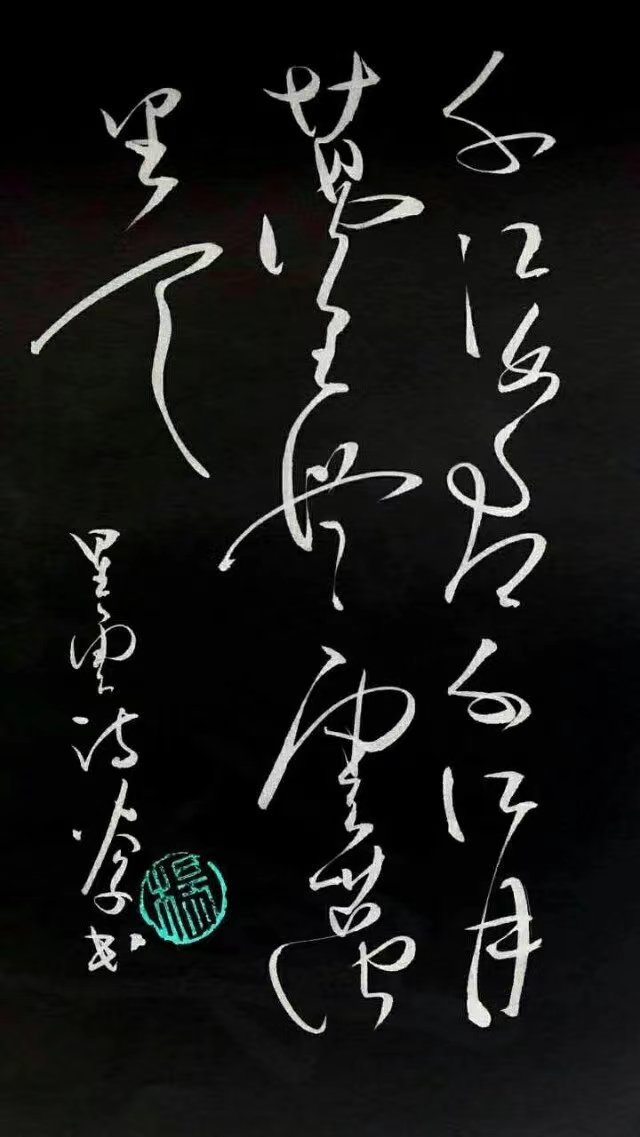 千江有水千江月
萬里無雲萬
里天
星雲诗书